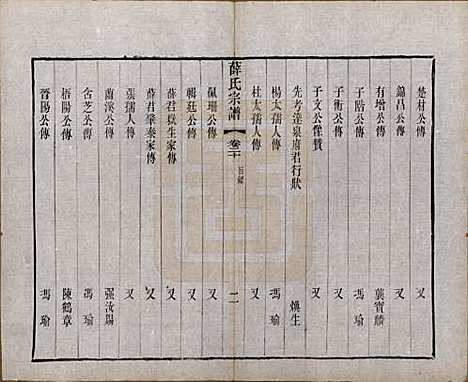 楚材公傳　又
錦昌公傳　又
有增公傳　龔寶麟
于階公傳　馮瑜
于衡公傳　又
于文公像贊　又
先考達泉府君行狀　煥生
楊太孺人傳　馮瑜
杜太孺人傳　又
薛氏宗譜　卷二十　目錄　二
佩珊公傳　又
輯廷公傳　又
薛君煥生家傳　又
薛君肇泰家傳　又
張孺人傳　又
蘭溪公傳　強汝錫
含芝公傳　馮瑜
梧陽公傳　陳鶴章
晉陽公傳　馮瑜